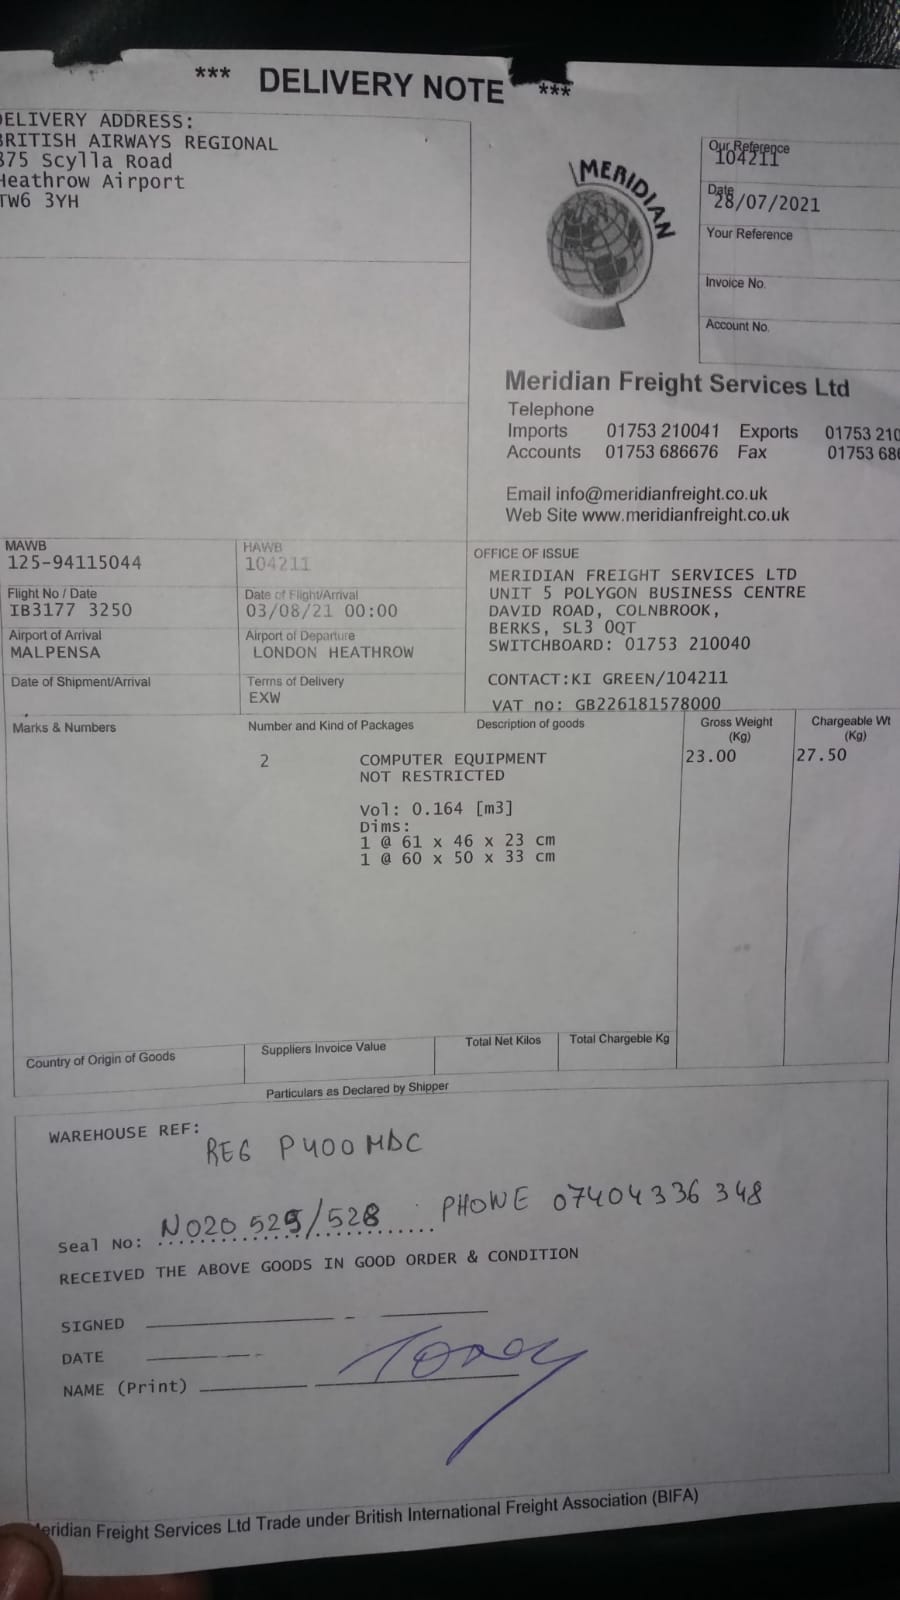 *** DELIVERY NOTE ***
DELIVERY ADDRESS:
BRITISH AIRWAYS REGIONAL
875 Scylla Road
Heathrow Airport
TW6 3YH
MERIDIAN
Our Reference
104211
Date
28/07/2021
Your Reference
Invoice No.
Account No.
Meridian Freight Services Ltd
Telephone
Imports 01753 210041 Exports 01753 210
Accounts 01753 686676 Fax 01753 686
Email info@meridianfreight.co.uk
Web Site www.meridianfreight.co.uk
MAWB
125-94115044
HAWB
104211
Flight No / Date
IB3177 3250
Date of Flight/Arrival
03/08/21 00:00
Airport of Arrival
MALPENSA
Airport of Departure
LONDON HEATHROW
Date of Shipment/Arrival
Terms of Delivery
EXW
OFFICE OF ISSUE
MERIDIAN FREIGHT SERVICES LTD
UNIT 5 POLYGON BUSINESS CENTRE
DAVID ROAD, COLNBROOK,
BERKS, SL3 0QT
SWITCHBOARD: 01753 210040
CONTACT:KI GREEN/104211
VAT no: GB226181578000
Marks & Numbers
Number and Kind of Packages
Description of goods
Gross Weight
(Kg)
Chargeable Wt
(Kg)
2 COMPUTER EQUIPMENT 23.00 27.50
NOT RESTRICTED
Vol: 0.164 [m3]
Dims:
1 @ 61 x 46 x 23 cm
1 @ 60 x 50 x 33 cm
Country of Origin of Goods
Suppliers Invoice Value
Total Net Kilos
Total Chargeble Kg
Particulars as Declared by Shipper
WAREHOUSE REF:
REG P400MDC
Seal No: N020 529/528 PHONE 07404336348
RECEIVED THE ABOVE GOODS IN GOOD ORDER & CONDITION
SIGNED
DATE
NAME (Print)
Meridian Freight Services Ltd Trade under British International Freight Association (BIFA)